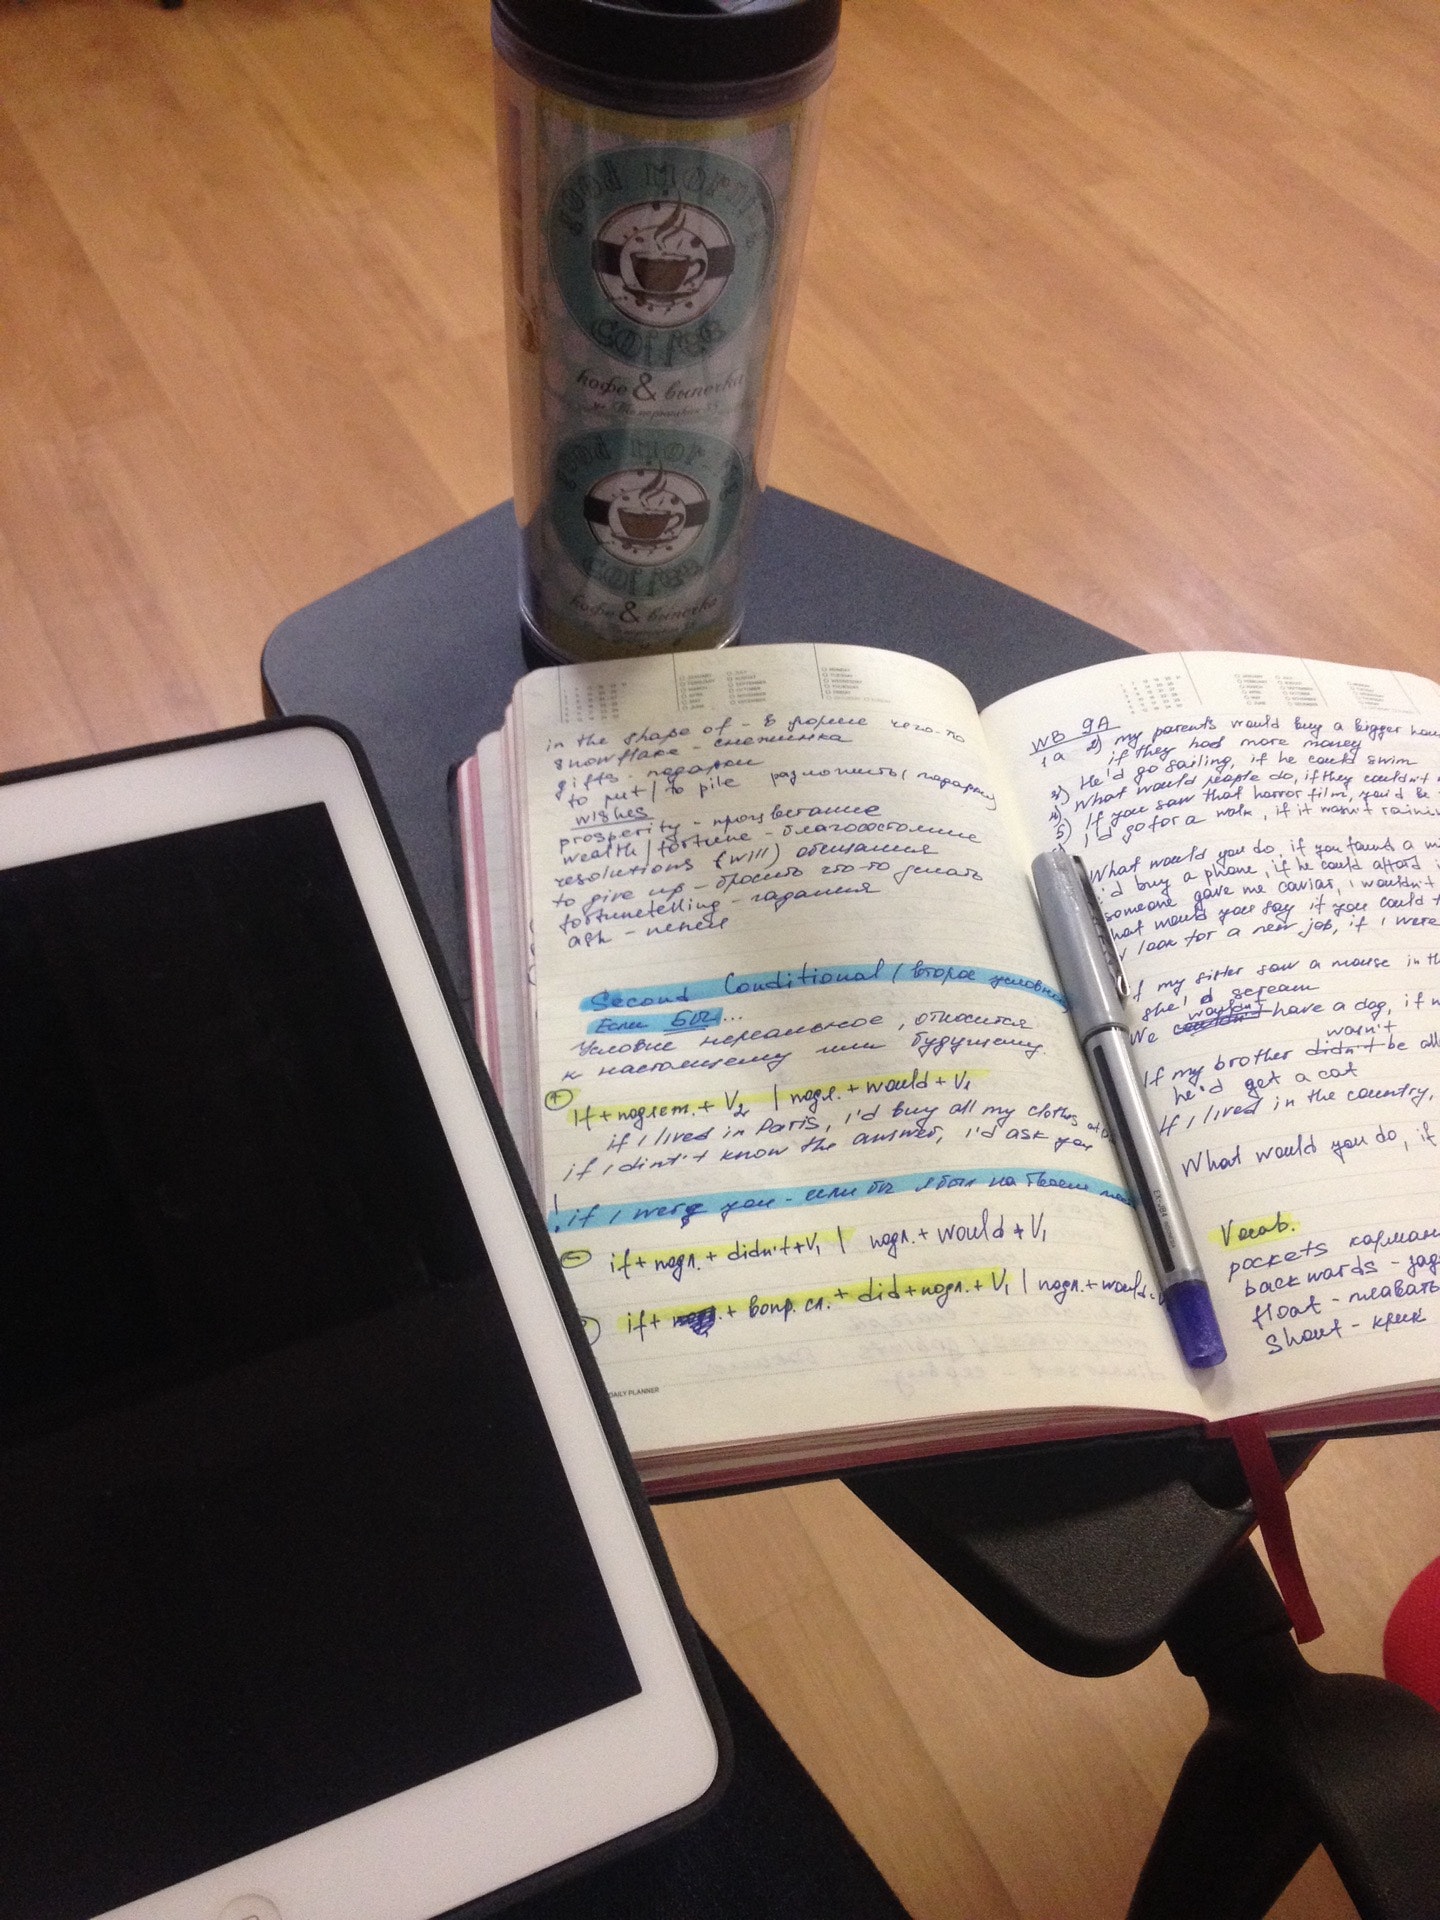 good morni
coffee
кофе & выпечка
good mor
coffee
кофе & выпечка
JANUARY JULY MONDAY
FEBRUARY AUGUST TUESDAY
MARCH SEPTEMBER WEDNESDAY
APRIL OCTOBER THURSDAY
MAY NOVEMBER
JUNE DECEMBER
in the shape of - в форме чего-то
snowflake - снежинка
gifts - подарки
to put / to pile разложить (подарки)
wishes
prosperity - процветание
wealth / fortune - благосостояние
resolutions (will) обещания
to give up - бросить что-то делать
fortunetelling - гадания
ash - пепел
Second Conditional (второе условн
Если бы ...
Условие нереальное, относится
к настоящему или будущему.
+ If + подлеж. + V2 | подл. + would + V1
if I lived in Paris, I'd buy all my clothes
if I dint't know the answer, I'd ask you
! if I were you - если бы я был на твоем
– if + подл. + didn't + V1 | подл. + would + V1
? if + + вопр. сл. + did + подл. + V1 | подл. + would +
DAILY PLANNER
WB 9A
1a 2) my parents would buy a bigger hou
if they had more money
3) He'd go sailing, if he could swim
4) What would people do, if they couldn't
5) If you saw that horror film, you'd be
I'd go for a walk, if it wasn't raini
What would you do, if you found a
I'd buy a phone, if he could afford
someone gave me caviar, I wouldn't
hat would you say if you could
look for a new job, if I were
If my sister saw a mouse in th
she'd scream
wouldn't
We couldn't have a dog, if
wasn't
If my brother didn't be all
he'd get a cat
If I lived in the country,
What would you do, if
Vocab.
pockets карман
backwards - зад
float - плавать
Shout - крик